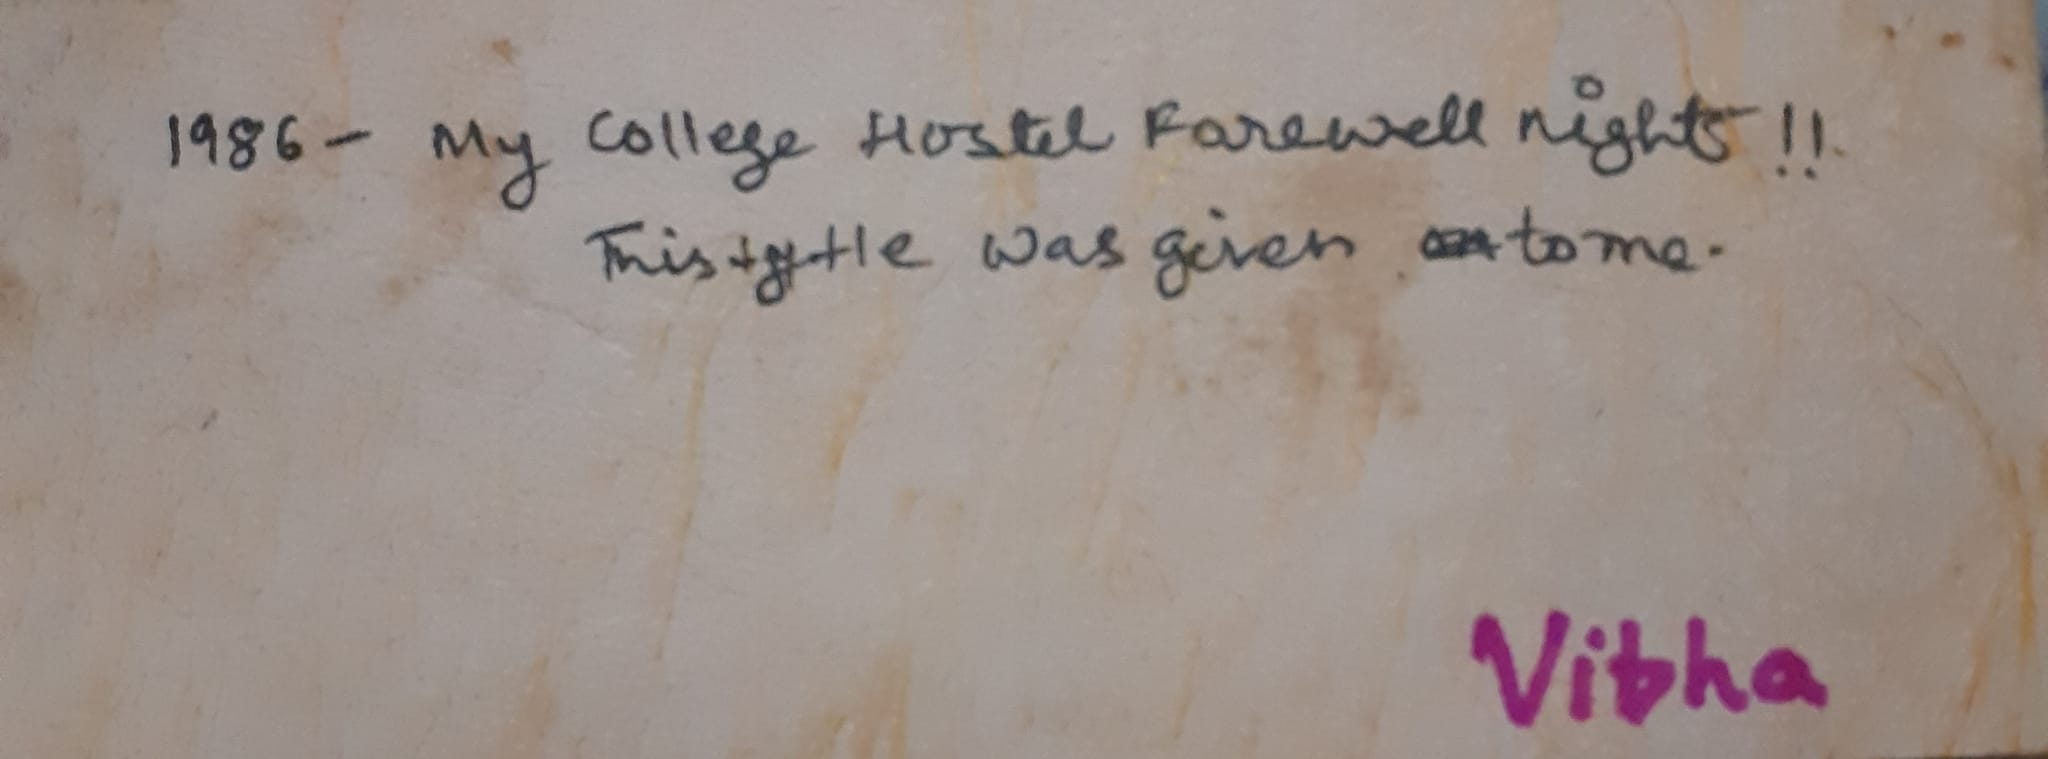 1986 - My College Hostel Farewell nights !!
This tytle was given to me.
Vibha